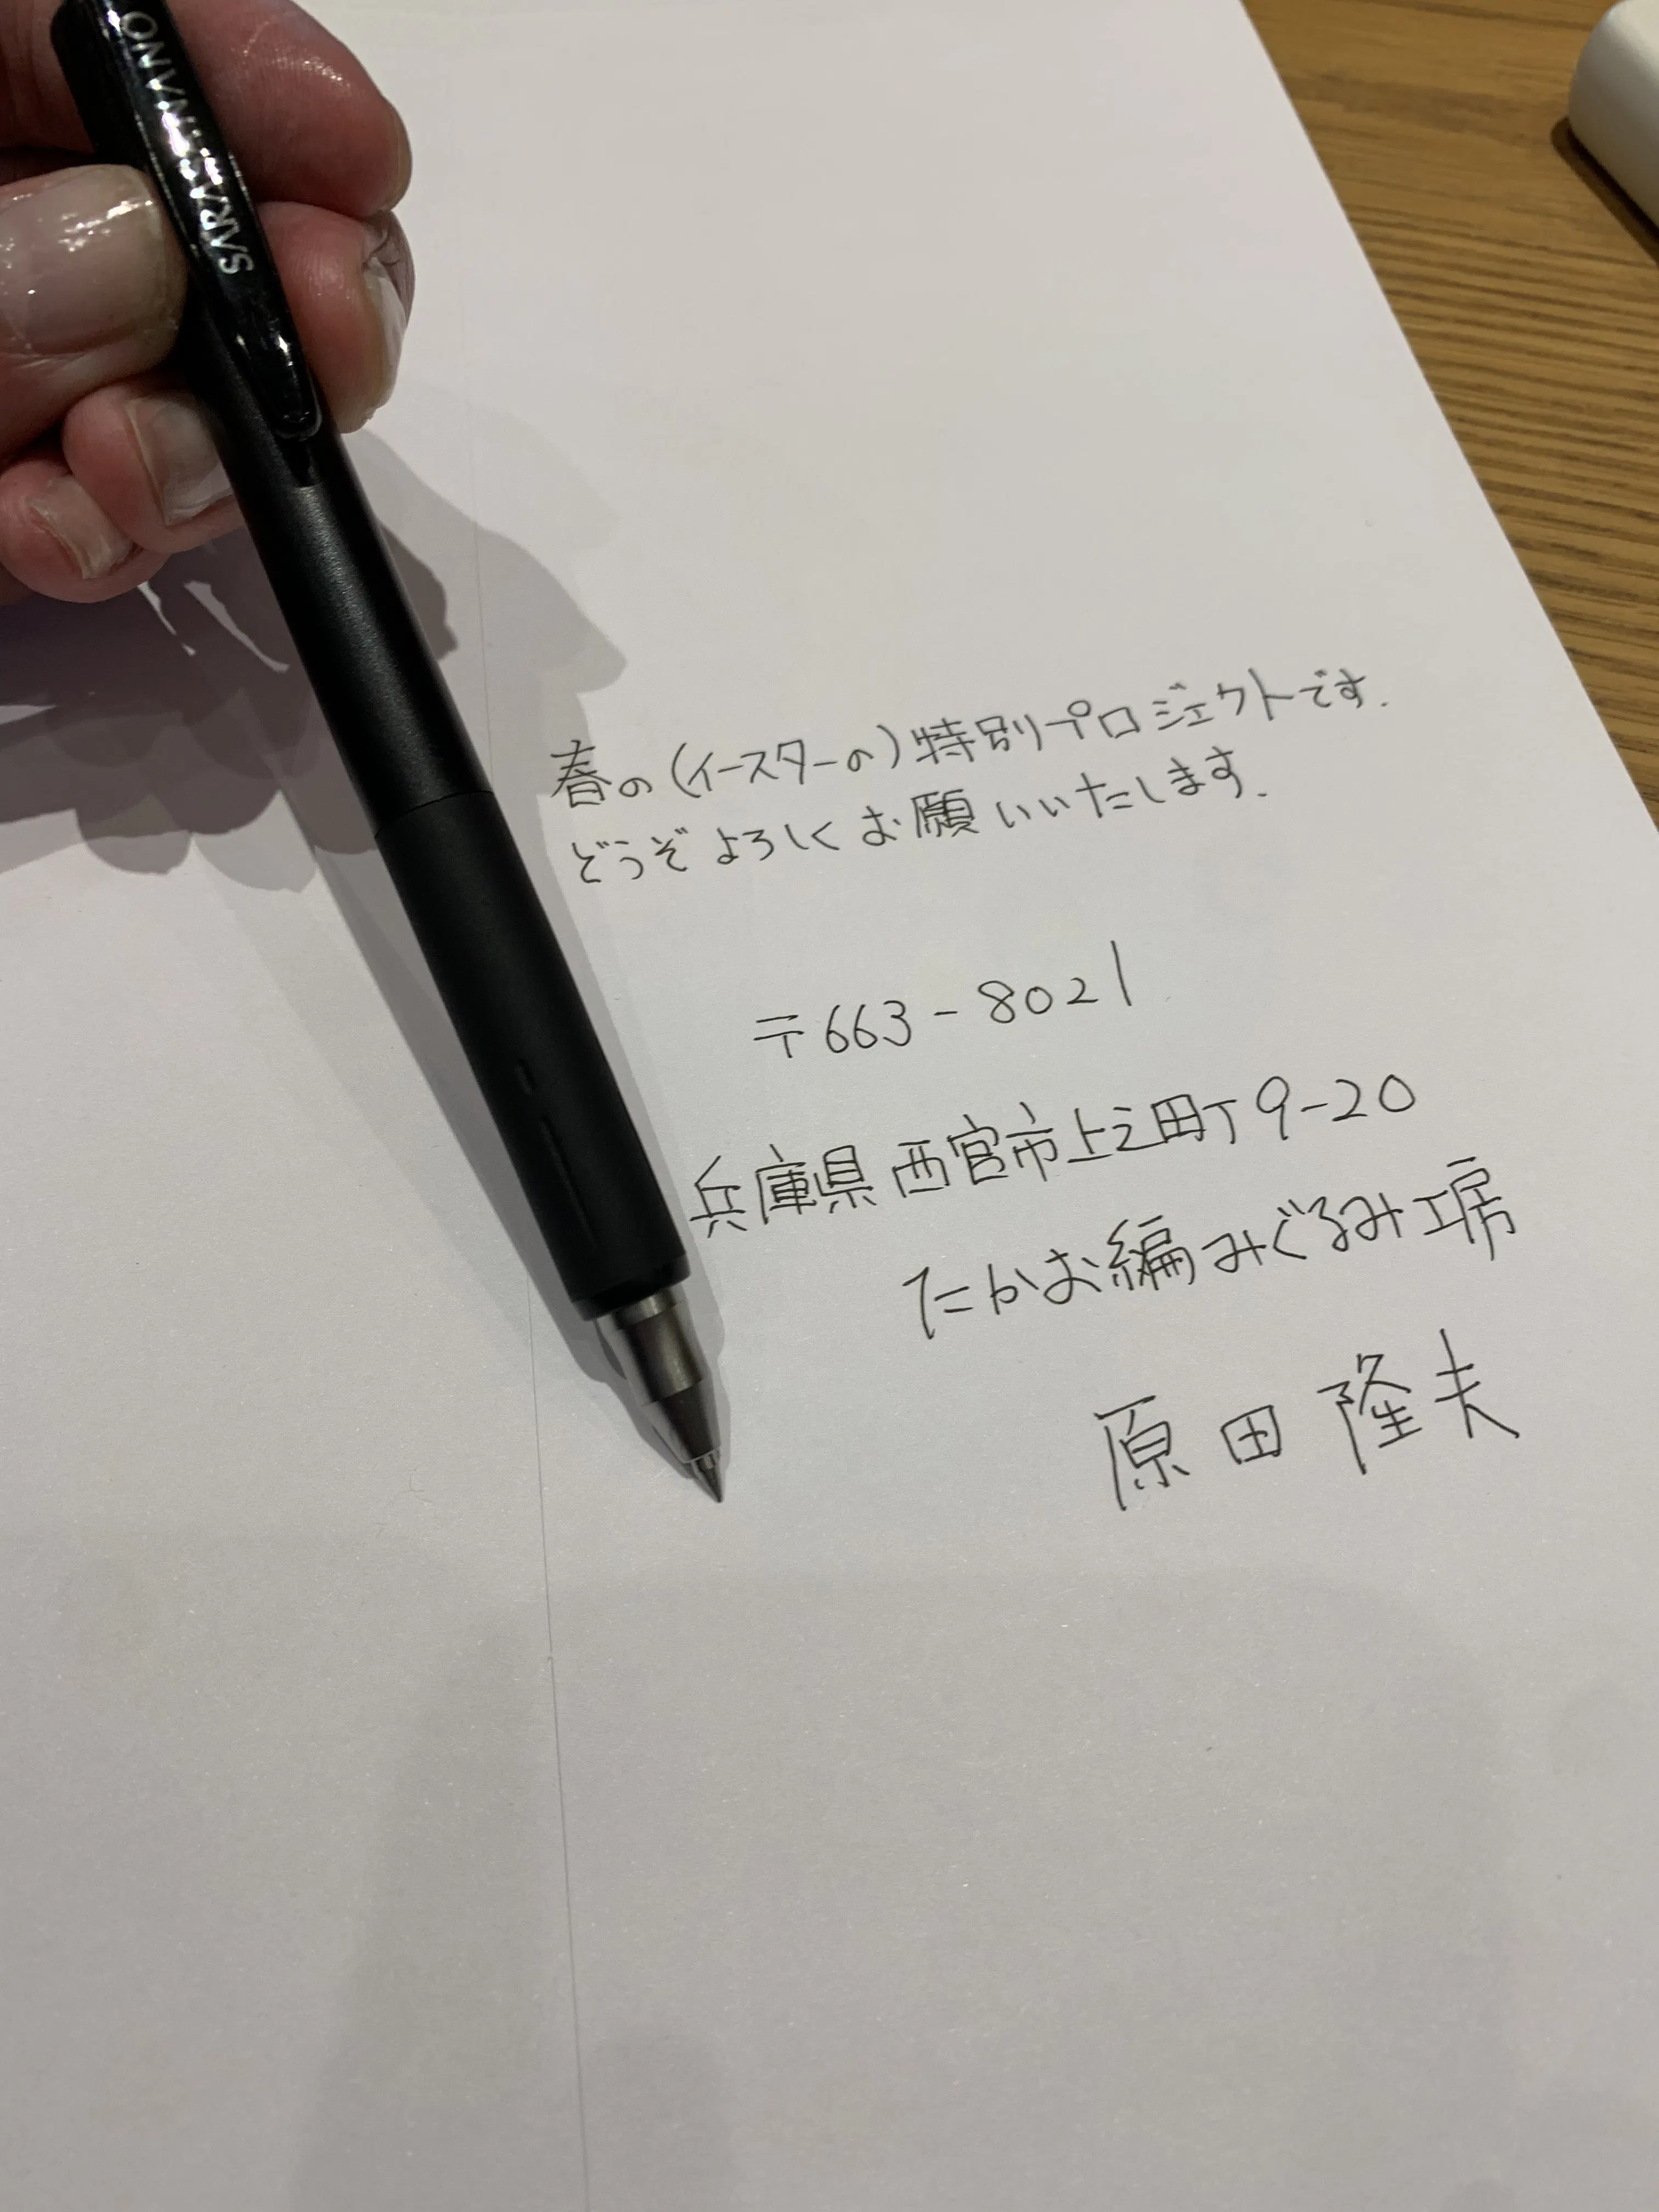 SARASA NANO
春の(イースターの)特別プロジェクトです.
どうぞよろしくお願いいたします.
〒663-8021
兵庫県西宮市上之田町9-20
たかお編みぐるみ工房
原田隆夫